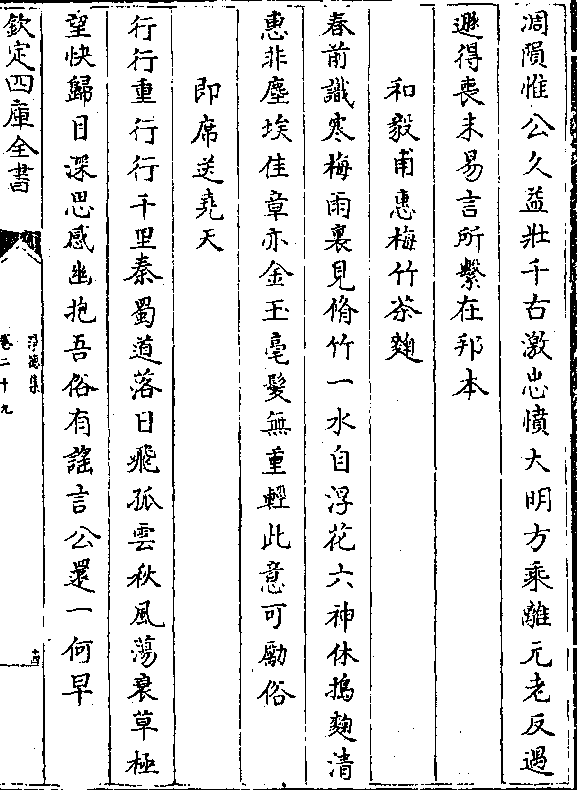 凋隕惟公久益壯千古激忠憤大明方乘離元老反遇
遯得喪未易言所繫在邦本
和毅甫惠梅竹茶麴
春前識寒梅雨裏見脩竹一水自浮花六神休搗麴清
惠非塵埃佳章亦金玉毫髮無重輕此意可勵俗
即席送堯天
行行重行行千里秦蜀道落日飛孤雲秋風蕩衰草極
望快歸目深思感幽抱吾俗有謡言公還一何早
欽定四庫全書
淨德集
卷二十九
十四